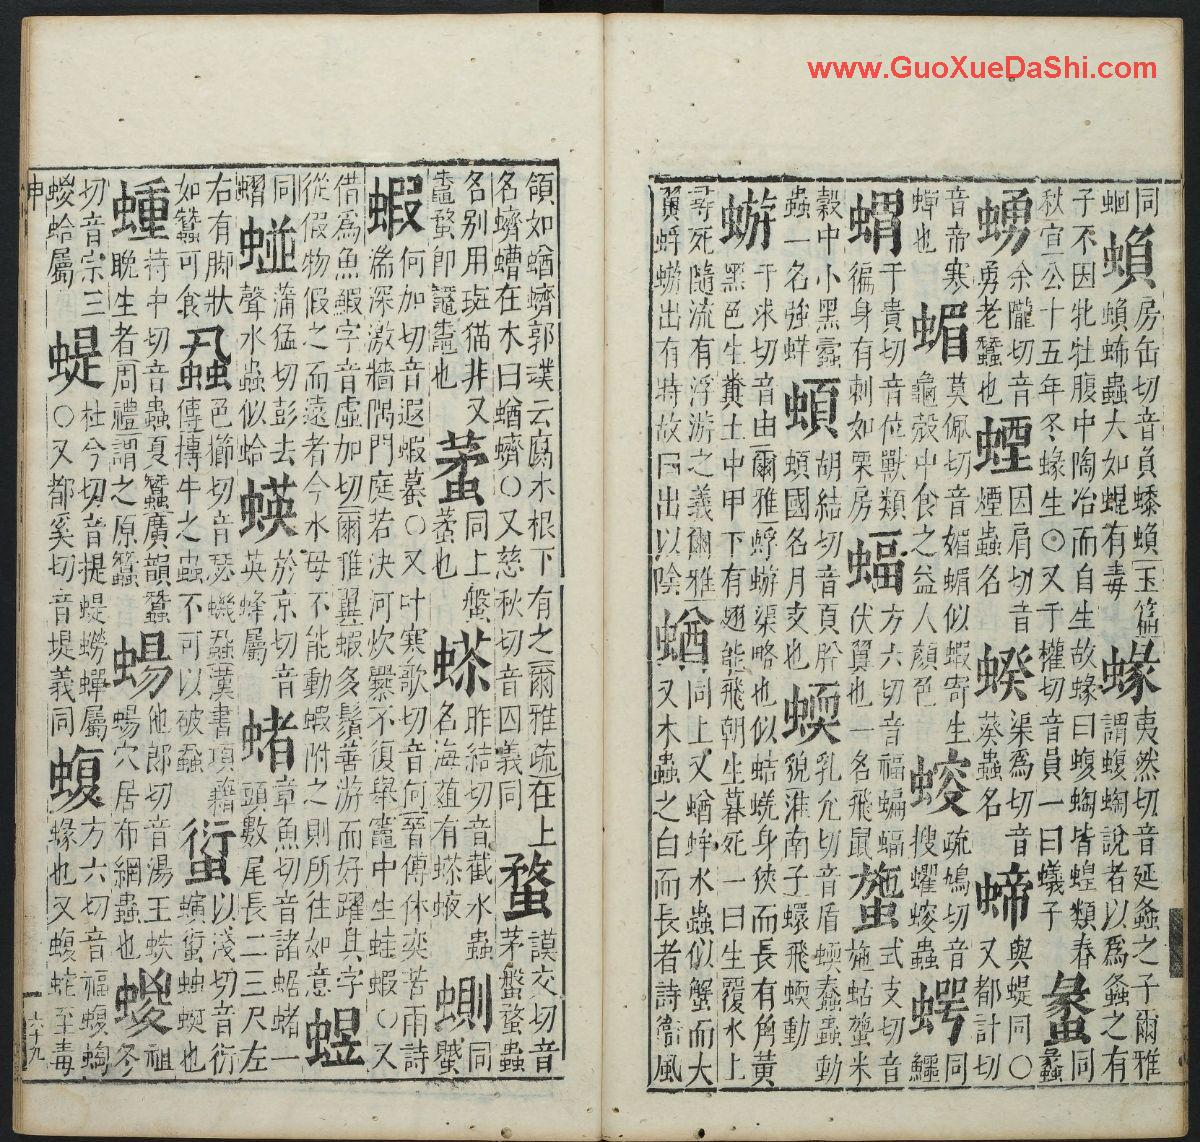 同
蛔
蝜
房缶切音負蟟蝜玉篇
蝜蜅蟲大如蜫有毒
蝝
夷然切音延螽之子爾雅
謂蝮蜪說者以爲螽之有
子不因牝牡腹中陶冶而自生故蝝曰蝮蜪皆蝗類春
秋宣公十五年冬蝝生⊙又于權切音員一曰蟻子
同
蠡
余隴切音
勇老蠶也
因肩切音
煙蟲名
渠爲切音
葵蟲名
䗖
與蝭同〇
又都計切
音帝寒
蟬也
蝞
莫佩切音媚蝞似蝦寄生
龜殻中食之益人顏色
螋
疏鳩切音
搜蠷螋蟲
同
鱷
蝟
于貴切音位獸類
徧身有刺如栗房
蝠
方六切音福蝙蝠
伏翼也一名飛鼠
䗐
式支切音
施蛄䗐米
穀中小黑蠹
蟲一名強蛘
胡結切音頁肸
國名月支也
蝡
乳允切音盾蝡蠢蟲動
貌淮南子蠉飛蝡動
蝣
于求切音由爾雅蜉蝣渠略也似蛣蜣身狹而長有角黃
黑色生糞土中甲下有翅能飛朝生暮死一曰生覆水上
尋死隨流有浮游之義爾雅
翼蜉蝣出有時故曰出以陰
蝤
同上又蝤蛑水蟲似蟹而大
又木蟲之白而長者詩衞風
領如蝤蠐郭璞云腐木根下有之爾雅疏在上
名蠐螬在木曰蝤蠐〇又慈秋切音囚義同
蝥
謨交切音
茅盤蝥蟲
名別用斑猫非又
鼄蝥卽鼅鼄也
蝥也
同上盤
昨結切音截水蟲
名海
同
蠈
蝦
何加切音遐蝦蟇〇又叶寒歌切音何晉傅休奕苦雨詩
霈深激牆隅門庭若決河炊爨不復舉竈中生蛙蝦〇又
借爲魚鰕字音虛加切爾雅翼蝦多鬚善游而好躍其字
從假物假之而遠者今水母不能動蝦附之則所往如意
蝑
同
蒲猛切彭去
聲水蟲似蛤
蝧
於京切音
英蜂屬
章魚切音諸蝫一
頭數尾長二三尺左
右有脚狀
如蠶可食
蝨
色櫛切音瑟蟣蝨漢書項籍
傳搏牛之蟲不可以破蝨
以淺切音衍
螾䘕蚰蜒也
蝩
持中切音蟲夏蠶廣韻蠶
晚生者周禮謂之原蠶
他郎切音湯王蛈
蝪穴居布網蟲也
蝬
祖
冬
切音宗三
蝬蛤屬
蝭
杜兮切音提蝭蟧蟬屬
〇又都奚切音堤義同
蝮
方六切音福蝮蜪
蝝也又蝮蛇至毒
申
六十九
www.GuoXueDaShi.com